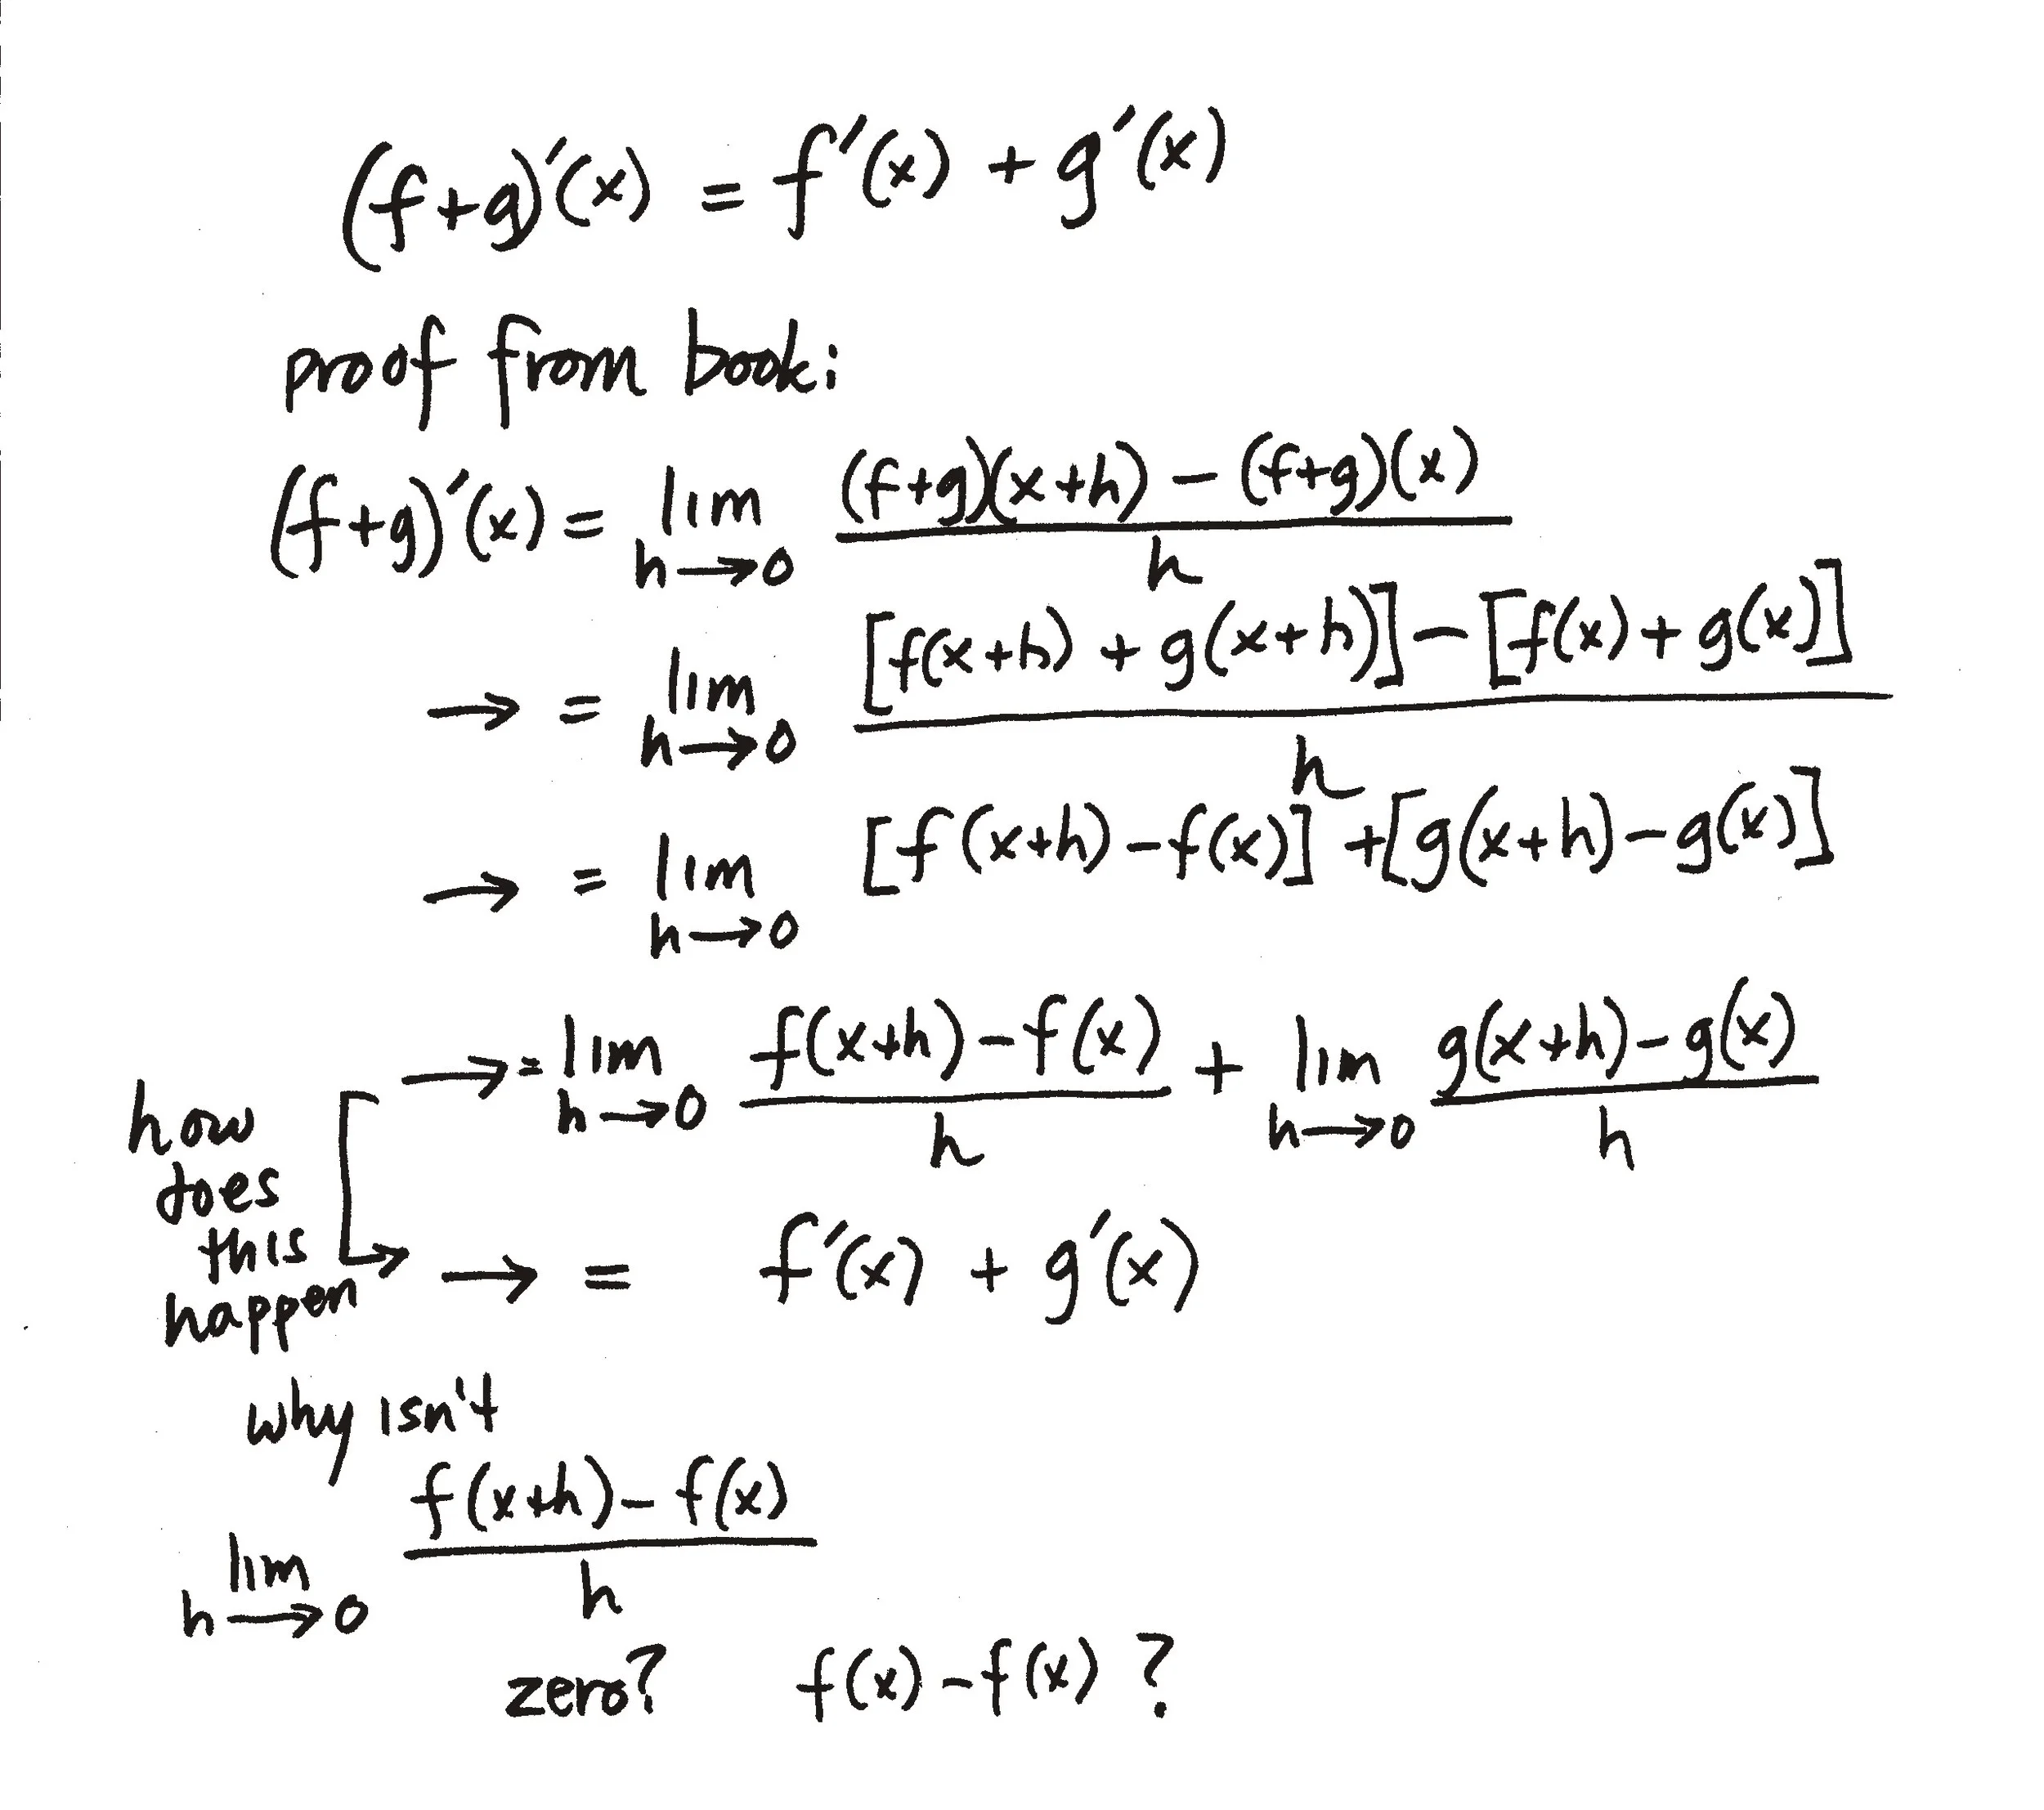 (f+g)′(x) = f′(x) + g′(x)
proof from book:
(f+g)′(x) = lim h→0 (f+g)(x+h) − (f+g)(x) / h
→ = lim h→0 [f(x+h) + g(x+h)] − [f(x) + g(x)] / h
→ = lim h→0 [f(x+h) − f(x)] + [g(x+h) − g(x)]
→ = lim h→0 f(x+h) − f(x) / h + lim h→0 g(x+h) − g(x) / h
how
does
this
happen
→ = f′(x) + g′(x)
why isn't
lim h→0 f(x+h) − f(x) / h
zero? f(x) − f(x) ?